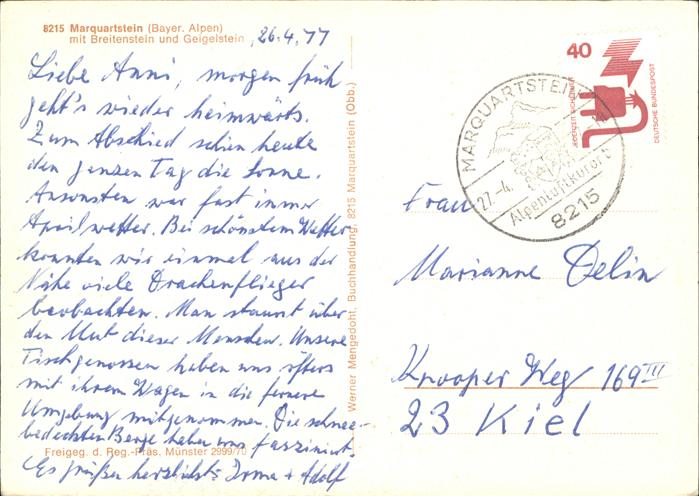 8215 Marquartstein (Bayer. Alpen)
mit Breitenstein und Geigelstein
26.4.77
Liebe Anni, morgen früh
geht's wieder heimwärts.
Zum Abschied schien heute
den ganzen Tag die Sonne.
Ansonsten war fast immer
Aprilwetter. Bei schönstem Wetter
konnten wir einmal aus der
Nähe viele Drachenflieger
beobachten. Man staunt über
den Mut dieser Menschen. Unsere
Tischgenossen haben uns öfters
mit ihrem Wagen in die fernere
Umgebung mitgenommen. Die schnee-
bedeckten Berge haben uns fasziniert.
Freigeg. d. Reg.-Präs. Münster 2999/70
Es grüßen herzlichst Irma + Adolf
Werner Mengedoht, Buchhandlung, 8215 Marquartstein (Obb.)
40
JEDERZEIT SICHERHEIT
DEUTSCHE BUNDESPOST
MARQUARTSTEIN
27.-4.
Alpenluftkurort
8215
Frau
Marianne Delin
Knooper Weg 169 III
23 Kiel